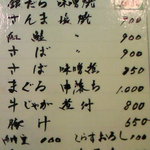 銀だら 味噌焼 900
さんま 塩焼 700
紅鮭 〃 900
さば 〃 900
さば 味噌煮 850
まぐろ 中落ち 1.000
牛じゃが 煮付 800
豚汁 650
300 しらすおろし 300